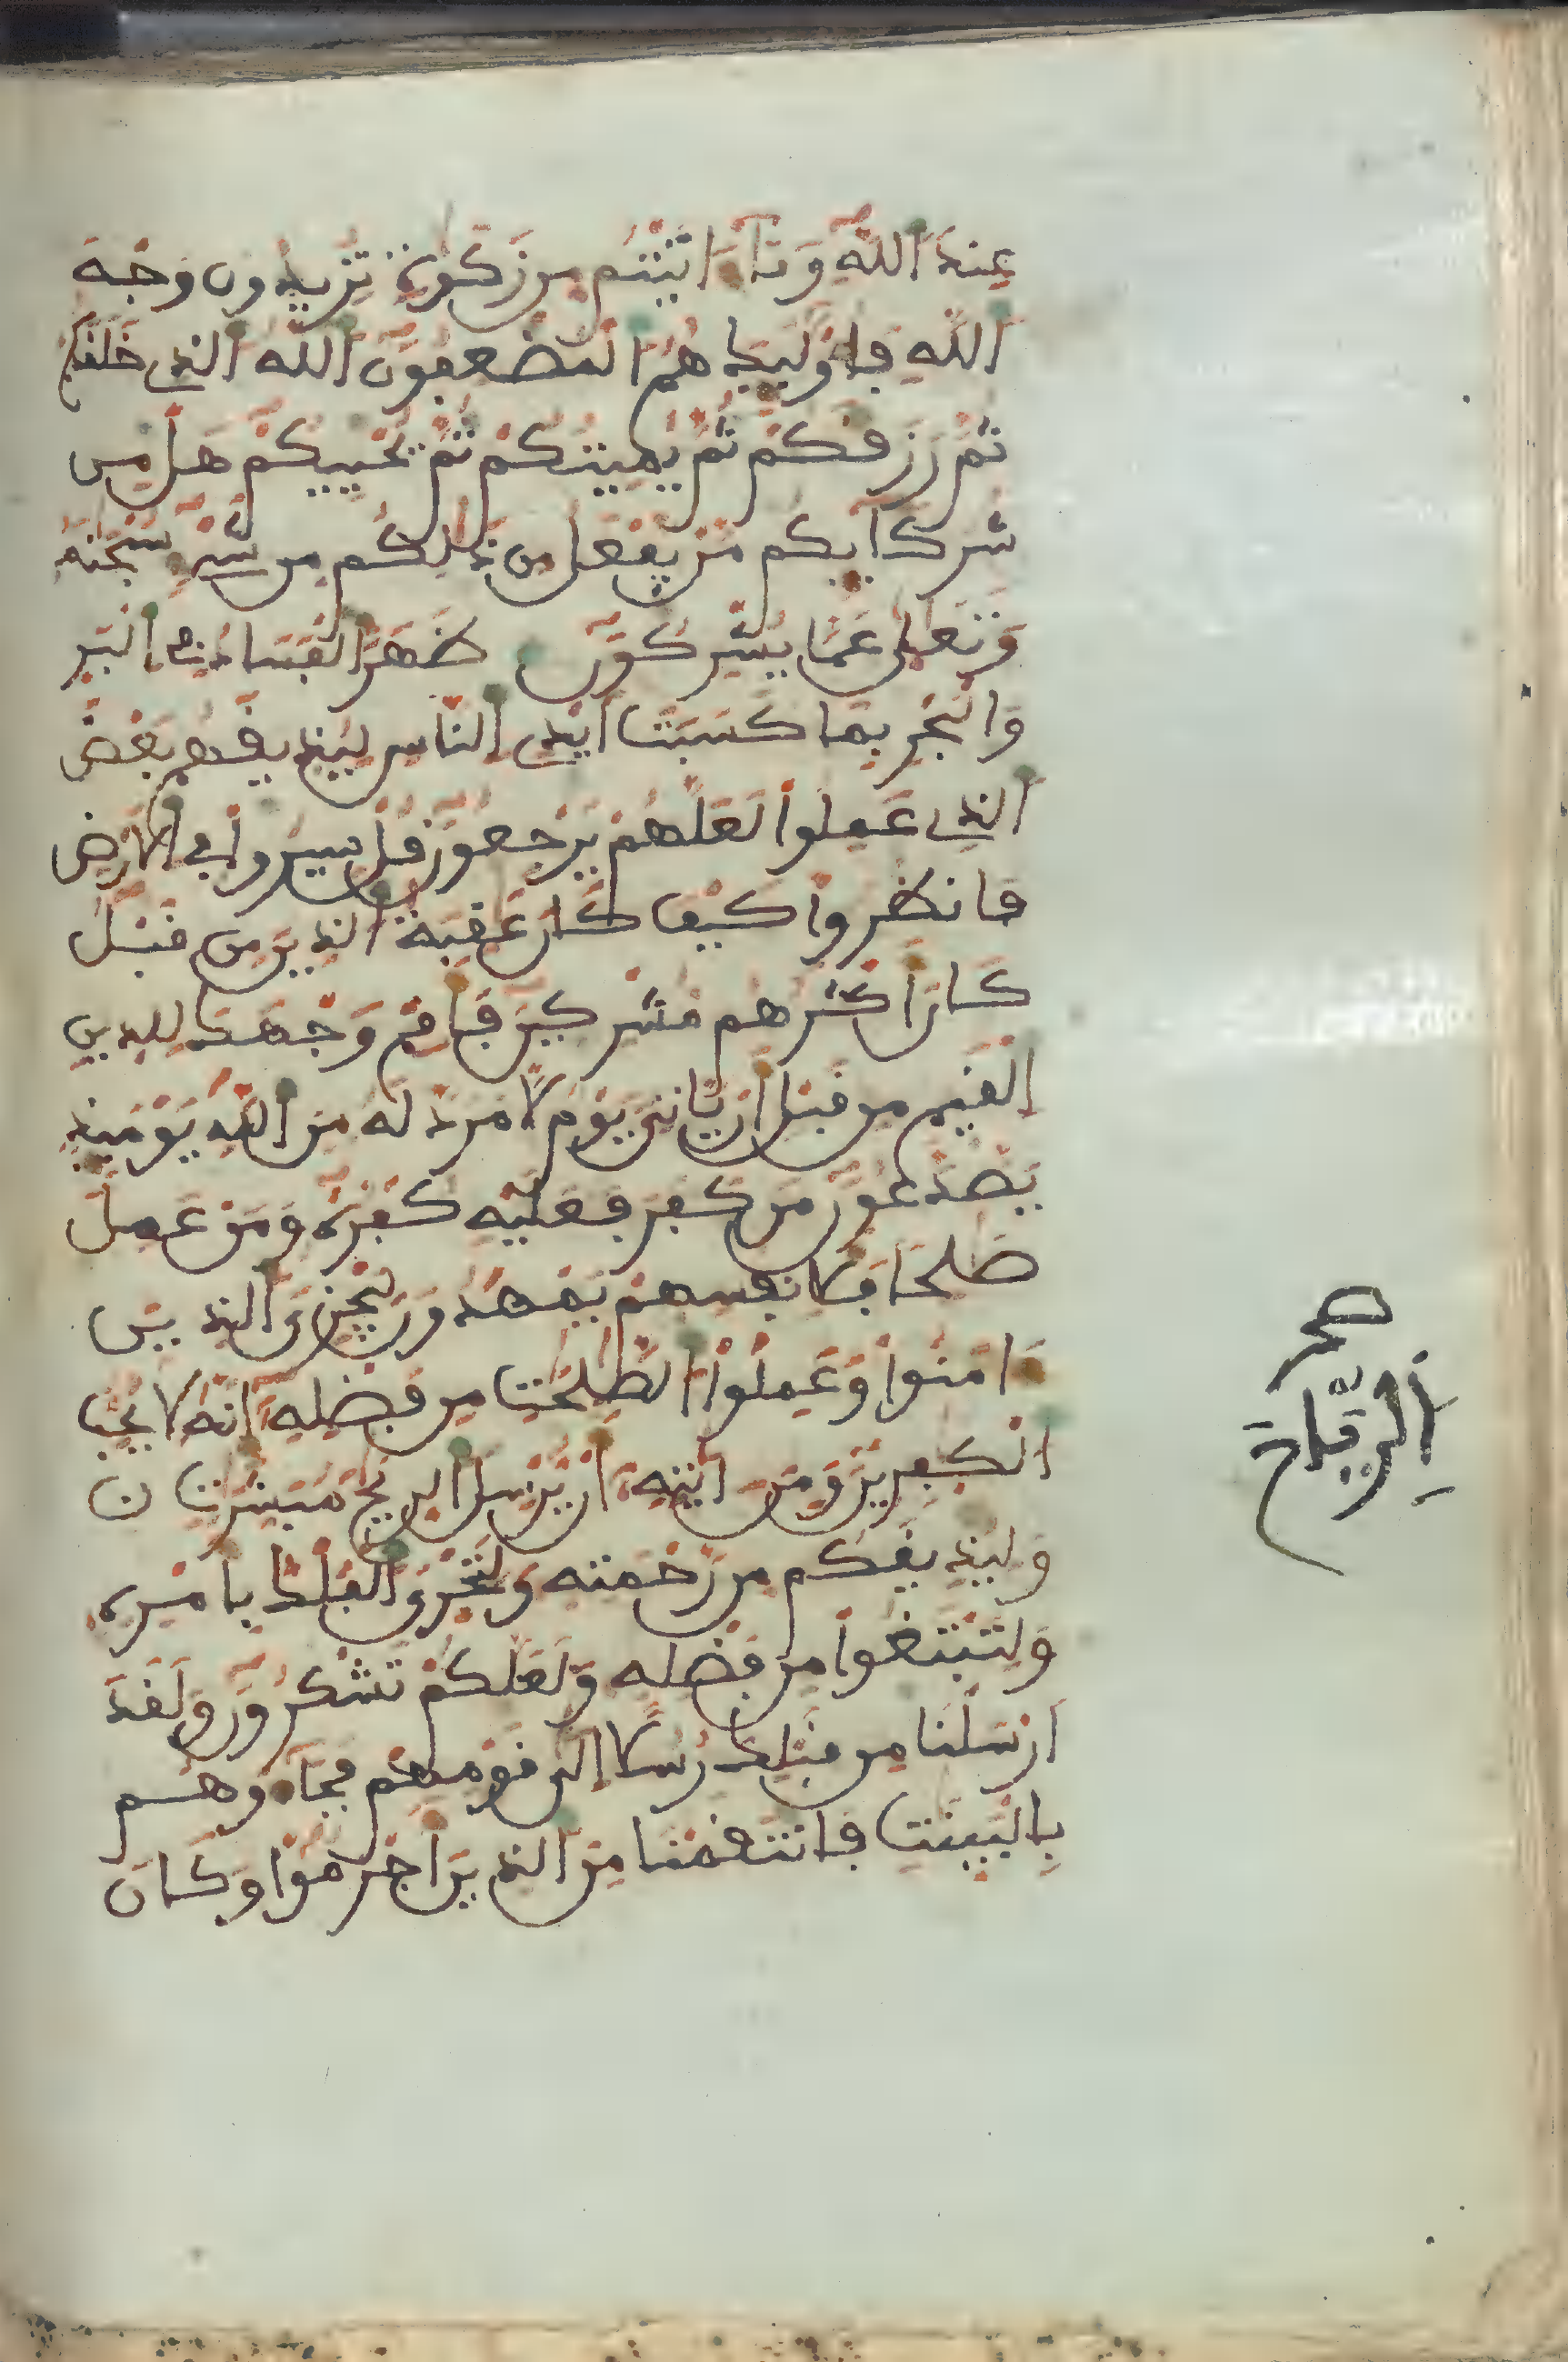 عِندَ اَللَّهِ وَمَآ ءَاتَيْتُم مِّن زَكَوٰةٖ تُرِيدُونَ وَجْهَ
اَللَّهِ فَأُوْلَٰٓئِكَ هُمُ اُلْمُضْعِفُونَ اَللَّهُ اُلذِے خَلَقَكُمْ
ثُمَّ رَزَقَكُمْ ثُمَّ يُمِيتُكُمْ ثُمَّ يُحْيِيكُمْ هَلْ مِن
شُرَكَآئِكُم مَّنْ يَّفْعَلُ مِن ذَٰلِكُم مِّن شَےْءٖ سُبْحَٰنَهُ
وَتَعَٰلَىٰ عَمَّا يُشْرِكُونَ ظَهَرَ اَلْفَسَادُ فِے اِلْبَرِّ
وَالْبَحْرِ بِمَا كَسَبَتَ اَيْدِے اِلنَّاسِ لِيُذِيقَهُم بَعْضَ
اَلذِے عَمِلُوا لَعَلَّهُمْ يَرْجِعُونَ قُلْ سِيرُوا فِے اِلَارْضِ
فَانظُرُوا كَيْفَ كَانَ عَٰقِبَةُ اُلذِينَ مِن قَبْلُ
كَانَ أَكْثَرُهُم مُّشْرِكِينَ فَأَقِمْ وَجْهَكَ لِلدِّينِ
اِلْقَيِّمِ مِن قَبْلِ أَنْ يَّاتِيَ يَوْمٌ لَّا مَرَدَّ لَهُ مِنَ اَللَّهِ يَوْمَئِذٖ
يَصَّدَّعُونَ مَن كَفَرَ فَعَلَيْهِ كُفْرُهُ وَمَنْ عَمِلَ
صَٰلِحاً فَلِأَنفُسِهِمْ يَمْهَدُونَ لِيَجْزِيَ اَلذِينَ
ءَامَنُوا وَعَمِلُوا اُلصَّٰلِحَٰتِ مِن فَضْلِهِ إِنَّهُ لَا يُحِبُّ
اُلْكَٰفِرِينَ وَمِنَ اٰيَٰتِهِ أَنْ يُّرْسِلَ اَلرِّيَاحَ مُبَشِّرَٰتٖ
وَلِيُذِيقَكُم مِّن رَّحْمَتِهِ وَلِتَجْرِيَ اَلْفُلْكُ بِأَمْرِهِ
وَلِتَبْتَغُوا مِن فَضْلِهِ وَلَعَلَّكُمْ تَشْكُرُونَ وَلَقَدَ
اَرْسَلْنَا مِن قَبْلِكَ رُسُلاً اِلَىٰ قَوْمِهِمْ فَجَآءُوهُم
بِالْبَيِّنَٰتِ فَانتَقَمْنَا مِنَ اَلذِينَ أَجْرَمُوا وَكَانَ